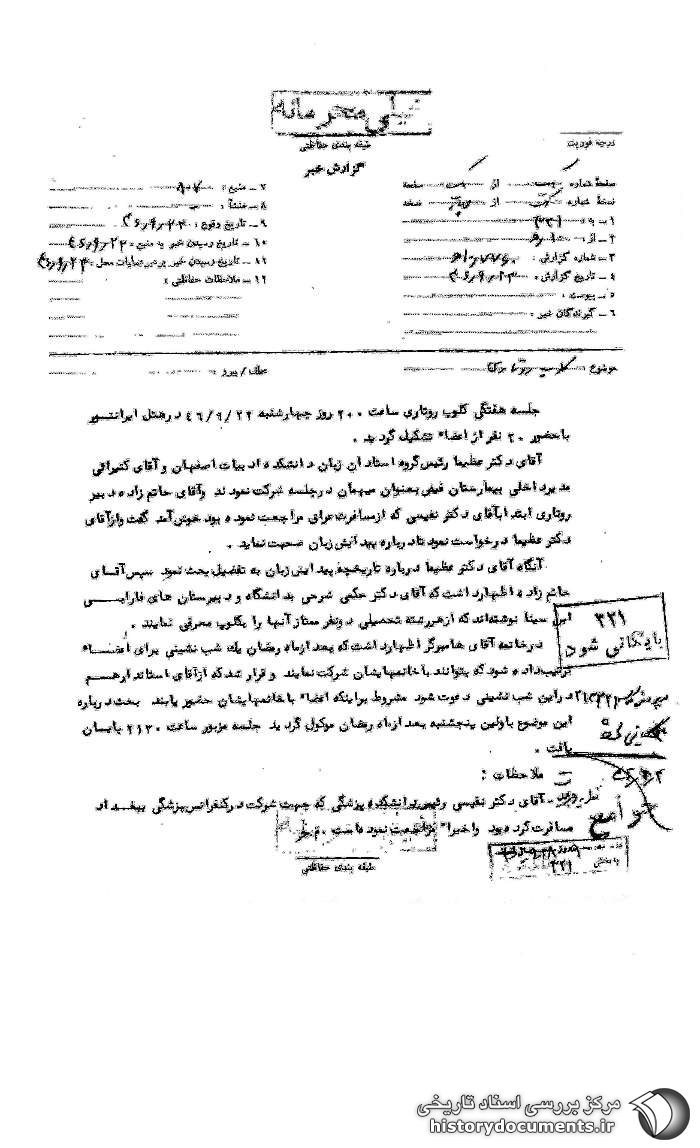 خیلی محرمانه
طبقه بندی حفاظتی
گزارش خبر
درجه فوریت
صفحه شماره یک از یک صفحه
نسخه شماره از نسخه
۱ – به : ۳۲۱
۲ – از :
۳ – شماره گزارش :
۴ – تاریخ گزارش :
۵ – پیوست :
۶ – گیرندگان خبر :
۷ – منبع :
۸ – منشأ :
۹ – تاریخ وقوع : ۴۶٫۹٫۲۲
۱۰ – تاریخ رسیدن خبر به منبع : ۴۶٫۹٫۲۲
۱۱ – تاریخ رسیدن خبر به رهبر عملیات محل :
۱۲ – ملاحظات حفاظتی :
موضوع : کلوپ روتاری
عطف / پیرو :
جلسه هفتگی کلوپ روتاری ساعت ۲۰۰۰ روز چهارشنبه ۴۶/۹/۲۲ در هتل ایرانتور
با حضور ۲۰ نفر از اعضاء تشکیل گردید .
آقای دکتر عظیما رئیس گروه استادان زبان دانشکده ادبیات اصفهان و آقای
مدیر داخلی بیمارستان فیض بعنوان میهمان در جلسه شرکت نمودند و آقای حاتم زاده دبیر
روتاری ابتدا با آقای دکتر نفیسی که از مسافرت عراق مراجعت نموده بود خوش آمد گفت و از آقای
دکتر عظیما درخواست نمود تا درباره پیدایش زبان صحبت نماید .
آنگاه آقای دکتر عظیما درباره تاریخچه پیدایش زبان به تفصیل بحث نمود سپس آقای
حاتم زاده اظهار داشت که آقای دکتر حکمی شرحی به دانشگاه و دبیرستان های فارابی
ابن سینا نوشته‌اند که از هر رشته تحصیلی دو نفر ممتاز آنها را بکلوپ معرفی نمایند .
در خاتمه آقای هامبرگر اظهار داشت که بعد از ماه رمضان یک شب نشینی برای اعضاء
ترتیب داده شود که بتوانند با خانمهایشان شرکت نمایند و قرار شد که از آقای استاندار هم
در این شب نشینی دعوت شود مشروط براینکه اعضاء با خانمهایشان حضور یابند بحث درباره
این موضوع باولین پنجشنبه بعد از ماه رمضان موکول گردید جلسه مزبور ساعت ۲۱۳۰ پایان
یافت .
ملاحظات :
آقای دکتر نفیسی رئیس دانشکده پزشکی که جهت شرکت در کنفرانس پزشکی ببغداد
مسافرت کرده بود و اخیراً مراجعت نموده است .
۳۲۱
بایگانی شود
جوامع
بایگانی
۳۲۱
طبقه بندی حفاظتی
مرکز بررسی اسناد تاریخی
historydocuments.ir